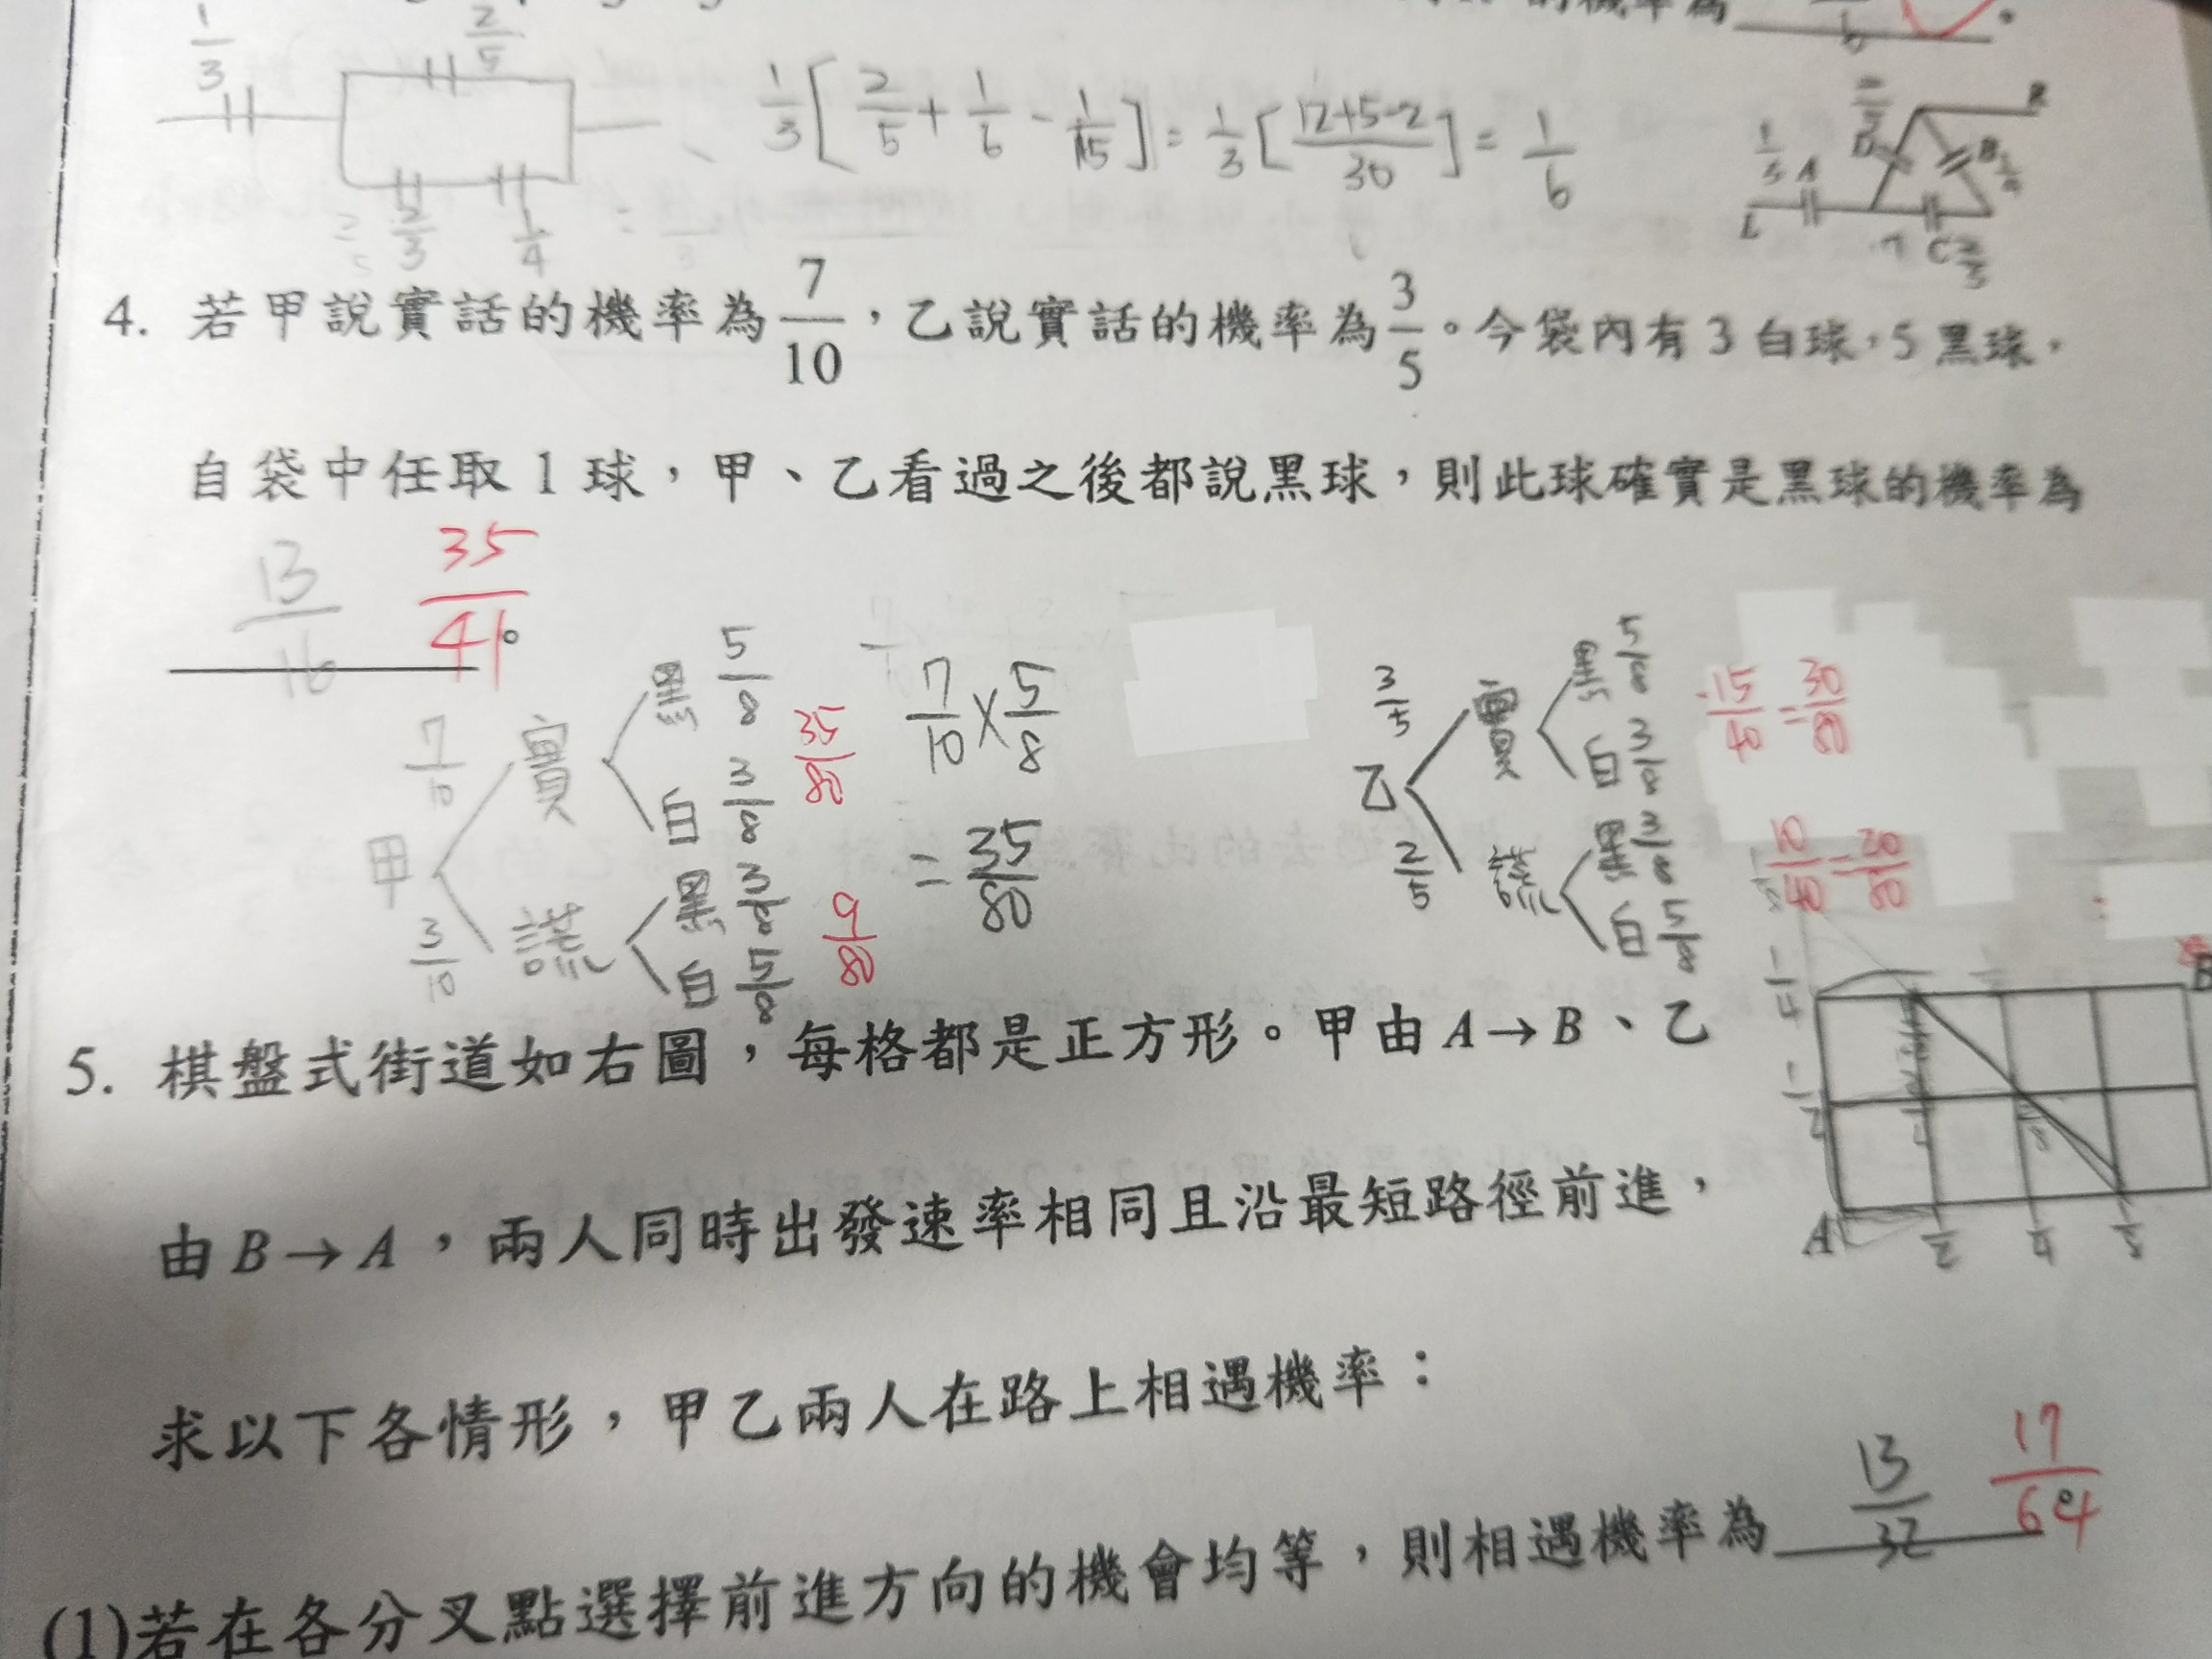 的機率為
1/3 2/5
2/3 1/4
1/3[2/5+1/6-1/15]=1/3[(12+5-2)/30]=1/6
4. 若甲說實話的機率為7/10，乙說實話的機率為3/5。今袋內有3白球，5黑球，
自袋中任取1球，甲、乙看過之後都說黑球，則此球確實是黑球的機率為
13/16 35/41。
甲 7/10 實 黑 5/8 35/80
白 3/8
3/10 謊 黑 3/8 9/80
白 5/8
7/10×5/8
=35/80
乙 3/5 實 黑 5/8 15/40=30/80
白 3/8
2/5 謊 黑 3/8
白 5/8
5. 棋盤式街道如右圖，每格都是正方形。甲由A→B、乙
由B→A，兩人同時出發速率相同且沿最短路徑前進，
求以下各情形，甲乙兩人在路上相遇機率：
(1)若在各分叉點選擇前進方向的機會均等，則相遇機率為 13/32 17/64。
B
1/4
A 1/2 1/4 1/8